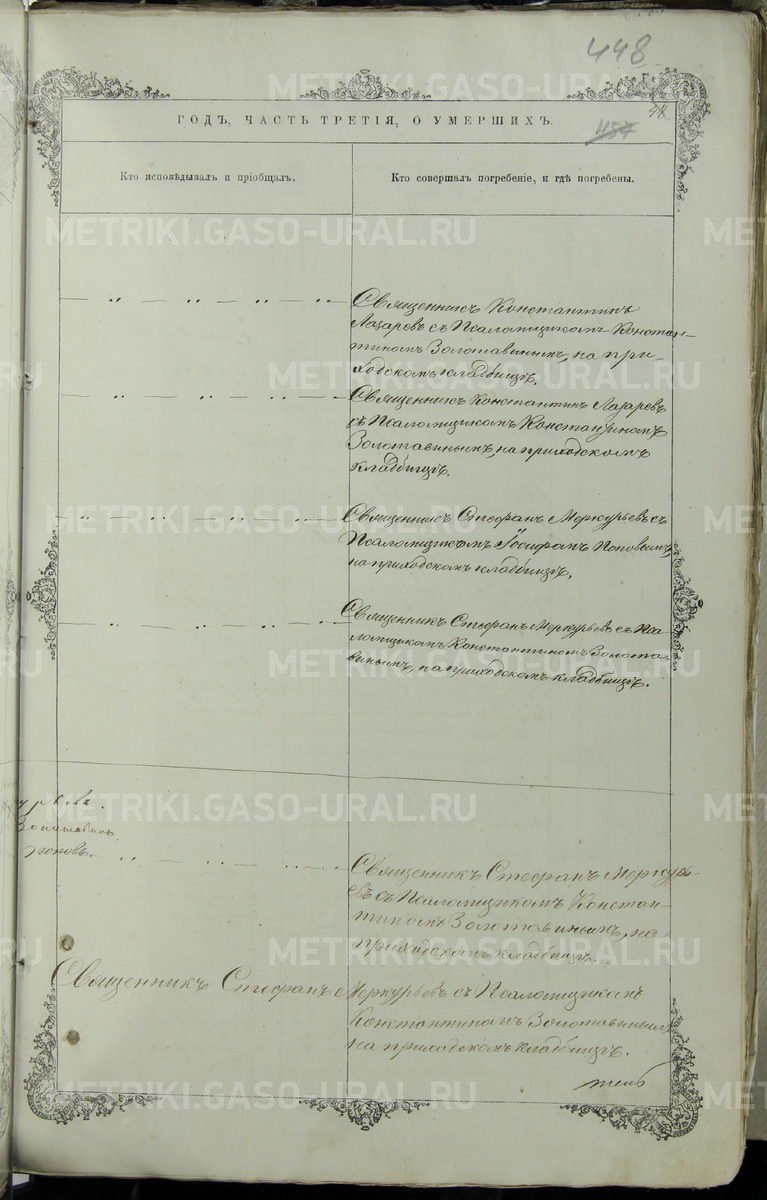 448
48
457
ГОДЪ, ЧАСТЬ ТРЕТІЯ, О УМЕРШИХЪ.
Кто исповѣдывалъ и пріобщалъ.
Кто совершалъ погребеніе, и гдѣ погребены.
Священникъ Константинъ
Лазаревъ съ Псаломщикомъ Констан-
тиномъ Золотавинымъ, на при-
ходскомъ кладбищѣ.
Священникъ Константинъ Лазаревъ
съ Псаломщикомъ Константиномъ
Золотавинымъ, на приходскомъ
кладбищѣ.
Священникъ Стефанъ Меркурьевъ съ
Псаломщикомъ Іосифомъ Поповымъ,
на приходскомъ кладбищѣ.
Священникъ Стефанъ Меркурьевъ съ Пса-
ломщикомъ Константиномъ Золота-
винымъ, на приходскомъ кладбищѣ.
Священникъ Стефанъ Меркурь-
евъ съ Псаломщикомъ Констан-
тиномъ Золотавинымъ, на
приходскомъ кладбищѣ.
Священникъ Стефанъ Меркурьевъ съ Псаломщикомъ
Константиномъ Золотавинымъ
на приходскомъ кладбищѣ.
METRIKI.GASO-URAL.RU